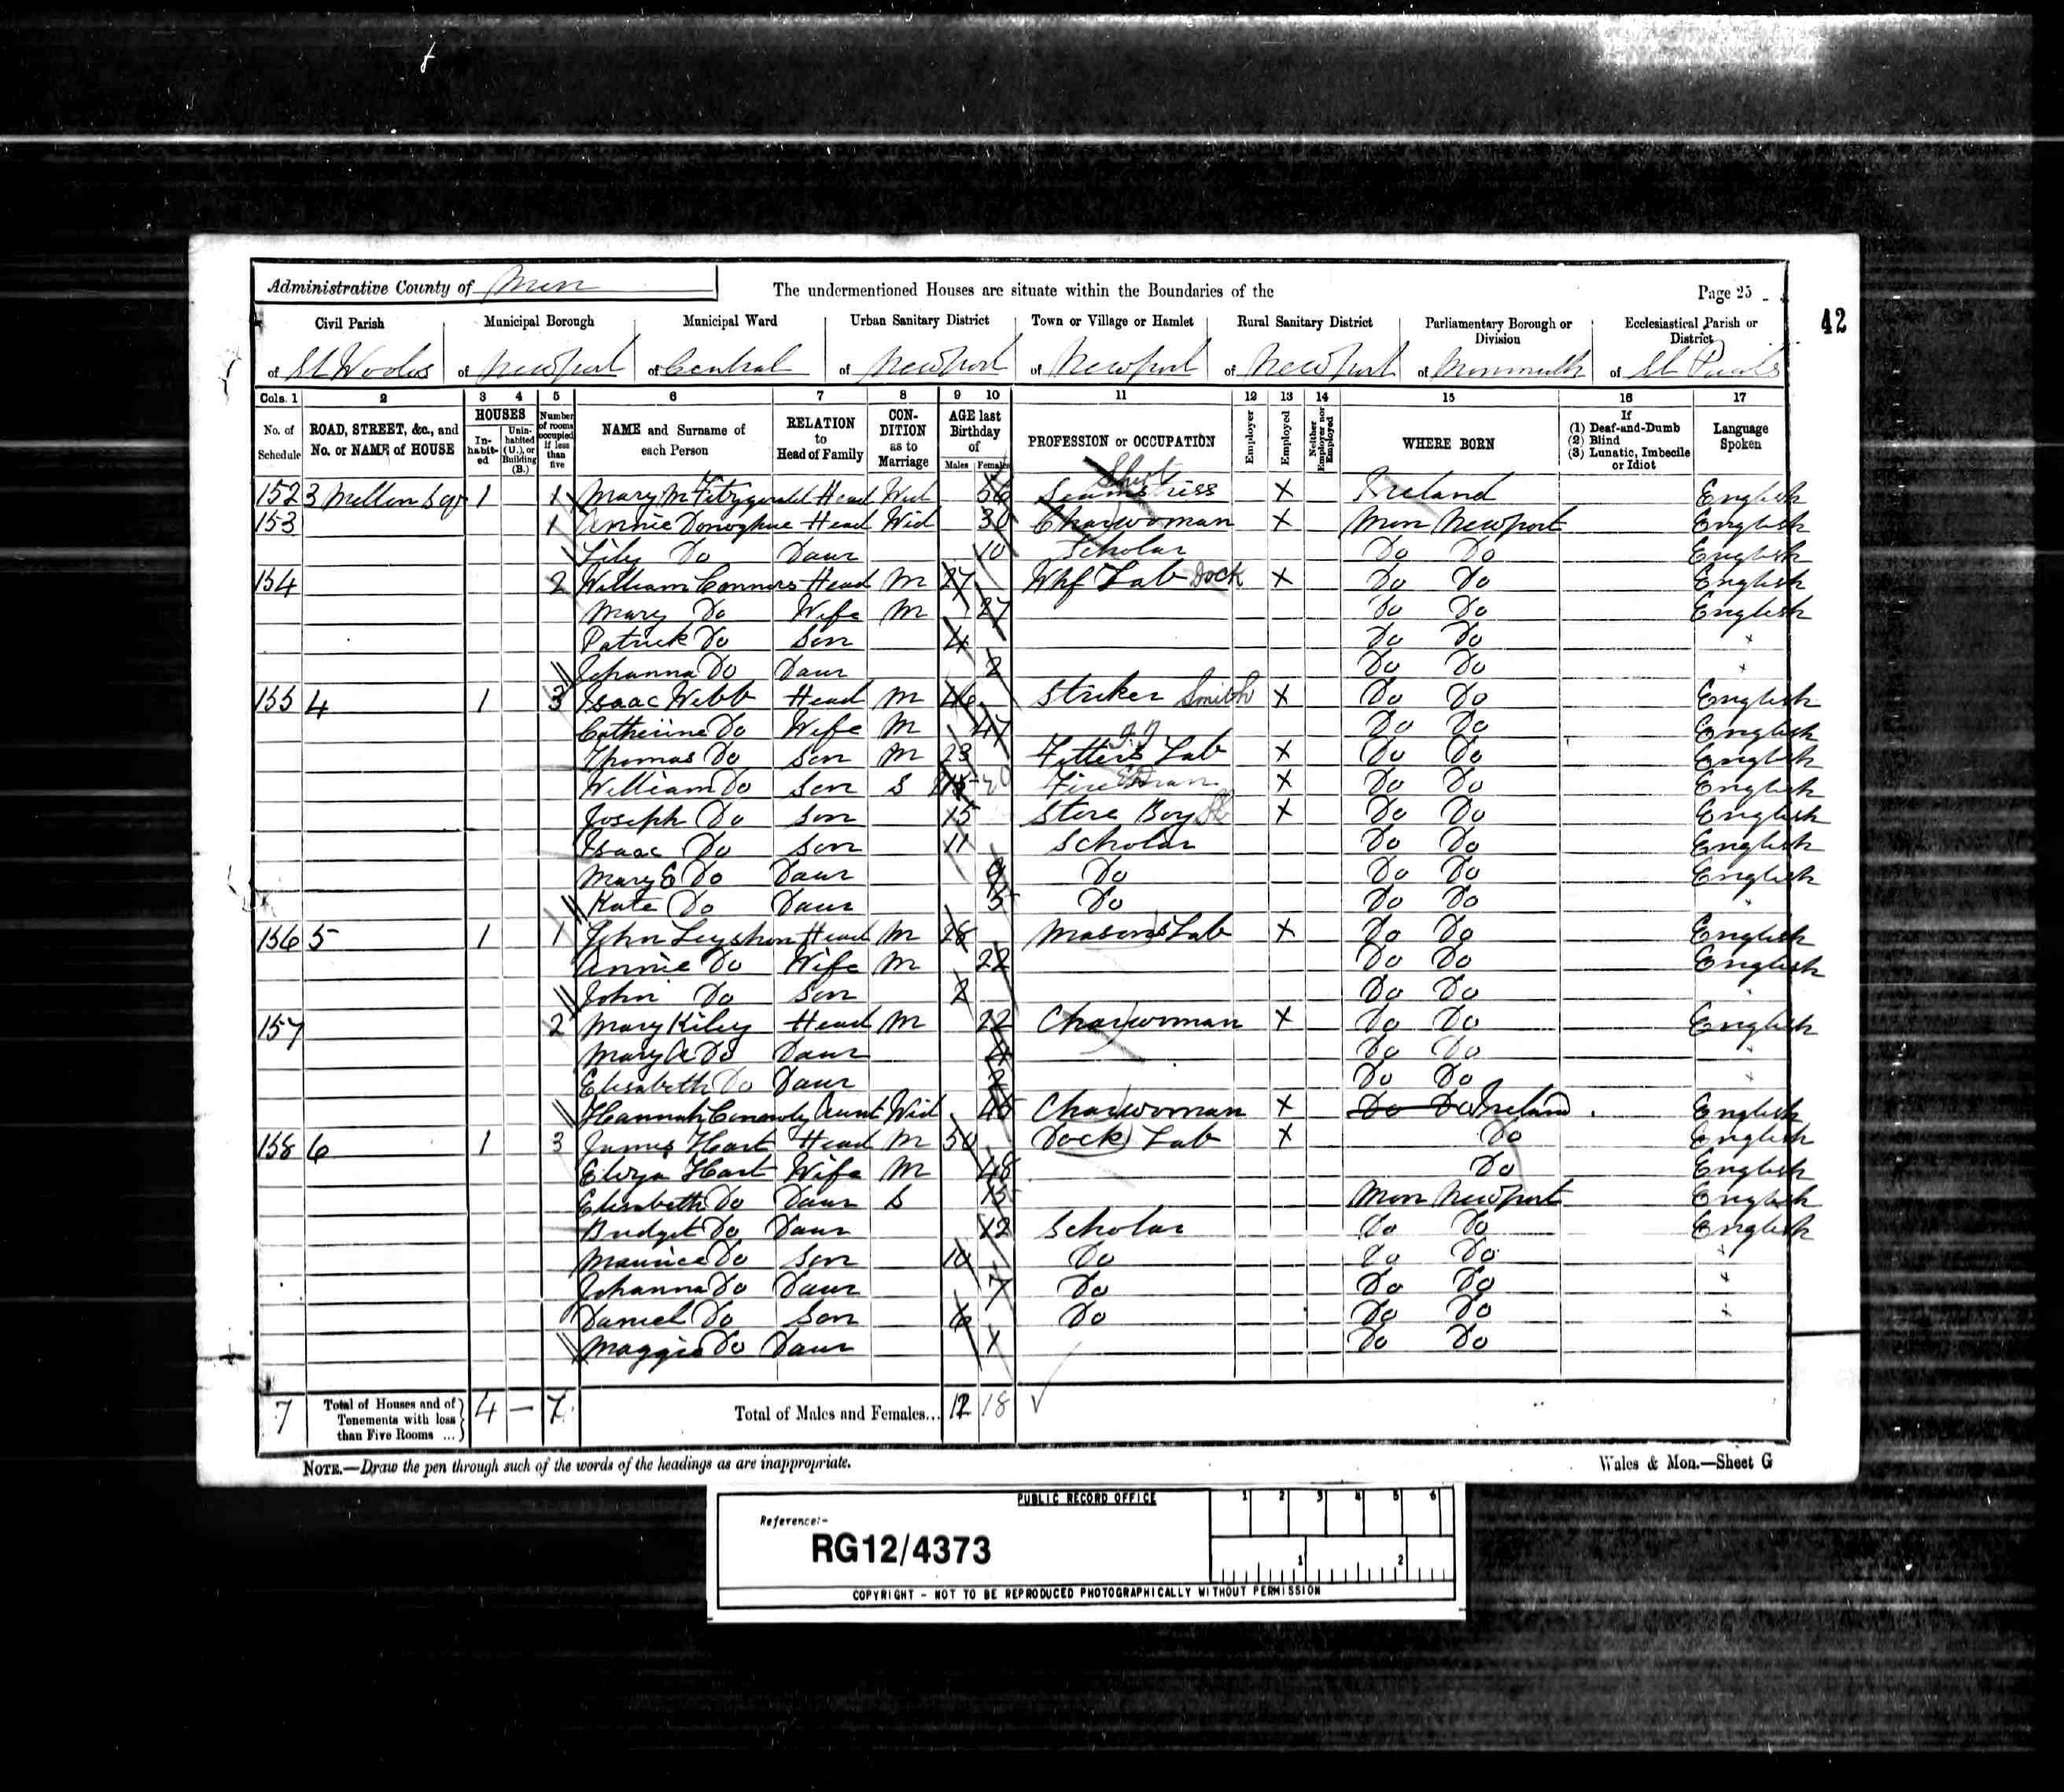 Administrative County of Mon
The undermentioned Houses are situate within the Boundaries of the
Page 25
42
Civil Parish Municipal Borough Municipal Ward Urban Sanitary District Town or Village or Hamlet Rural Sanitary District Parliamentary Borough or Division Ecclesiastical Parish or District
of St Woolos of Newport of Central of Newport of Newport of Newport of Monmouth of St Pauls
Cols. 1 2 3 4 5 6 7 8 9 10 11 12 13 14 15 16 17
No. of Schedule ROAD, STREET, &c., and No. or NAME of HOUSE HOUSES In-habit-ed Unin-habited (U.), or Building (B.) Number of rooms occupied if less than five NAME and Surname of each Person RELATION to Head of Family CON-DITION as to Marriage AGE last Birthday of Males Females PROFESSION or OCCUPATION Employer Employed Neither Employer nor Employed WHERE BORN If (1) Deaf-and-Dumb (2) Blind (3) Lunatic, Imbecile or Idiot Language Spoken
152 3 Mellon 1 1 Mary M Fitzgerald Head Wid 56 Seamstriss Shirt X Ireland English
153 1 Annie Donoghue Head Wid 30 Charwoman X Mon Newport English
Lily Do Daur 10 Scholar Do Do English
154 2 William Connors Head M 27 Whf Lab Dock X Do Do English
Mary Do Wife M 27 Do Do English
Patrick Do Son 4 Do Do
Johanna Do Daur 2 Do Do
155 4 1 3 Isaac Webb Head M 46 Striker Smith X Do Do English
Catherine Do Wife M 47 Do Do English
Thomas Do Son M 23 Fitters Lab X Do Do English
William Do Son S Fireman X Do Do English
Joseph Do Son 15 Store Boy X Do Do English
Isaac Do Son 11 Scholar Do Do English
Mary E Do Daur 9 Do Do Do English
Kate Do Daur 5 Do Do Do "
156 5 1 1 John Leyshon Head M 28 Masons Lab X Do Do English
Annie Do Wife M 22 Do Do English
John Do Son 2 Do Do "
157 2 Mary Kiley Head M 22 Charwoman X Do Do English
Mary A Do Daur 4 Do Do "
Elisabeth Do Daur 2 Do Do
Hannah Connoly Aunt Wid 45 Charwoman X Do Do Ireland English
158 6 1 3 James Hart Head M 50 Dock Lab X Do English
Eliza Hart Wife M 48 Do English
Elisabeth Do Daur S 15 Mon Newport English
Bridget Do Daur 12 Scholar Do Do English
Maurice Do Son 10 Do Do Do
Johanna Do Daur 7 Do Do Do
Daniel Do Son 6 Do Do Do
Maggie Do Daur 1 Do Do
7 Total of Houses and of Tenements with less than Five Rooms ... 4 — 7 Total of Males and Females... 12 18
NOTE.—Draw the pen through such of the words of the headings as are inappropriate.
Wales & Mon.—Sheet G
PUBLIC RECORD OFFICE
1 2 3 4 5 6
Reference:-
RG12/4373
1 2
COPYRIGHT - NOT TO BE REPRODUCED PHOTOGRAPHICALLY WITHOUT PERMISSION